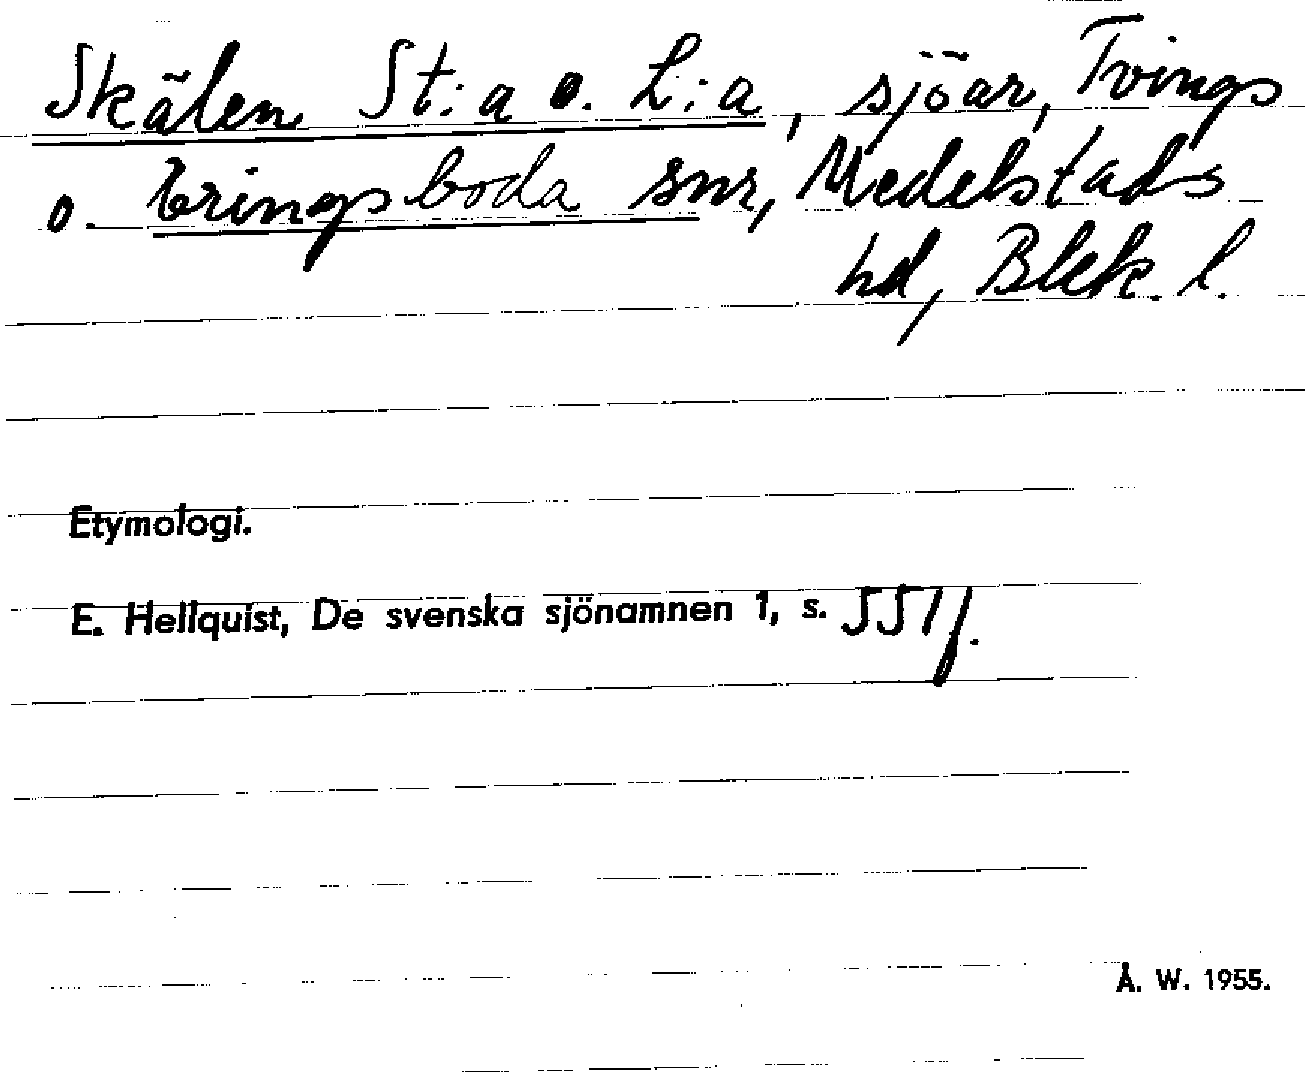 Skälen St:a o. L:a, sjöar, Tvings
o. Eringsboda snr, Medelstads
hd, Blek. l.
Etymologi.
E. Hellquist, De svenska sjönamnen 1, s. 551f.
Å. W. 1955.